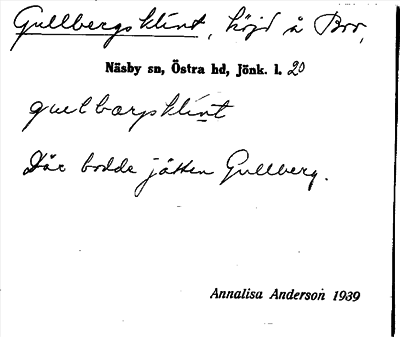 Gullbergsklint, höjd å Bro,
Näsby sn, Östra hd, Jönk. l. 20
gulbærgsklint
Där bodde jätten Gullberg.
Annalisa Anderson 1939